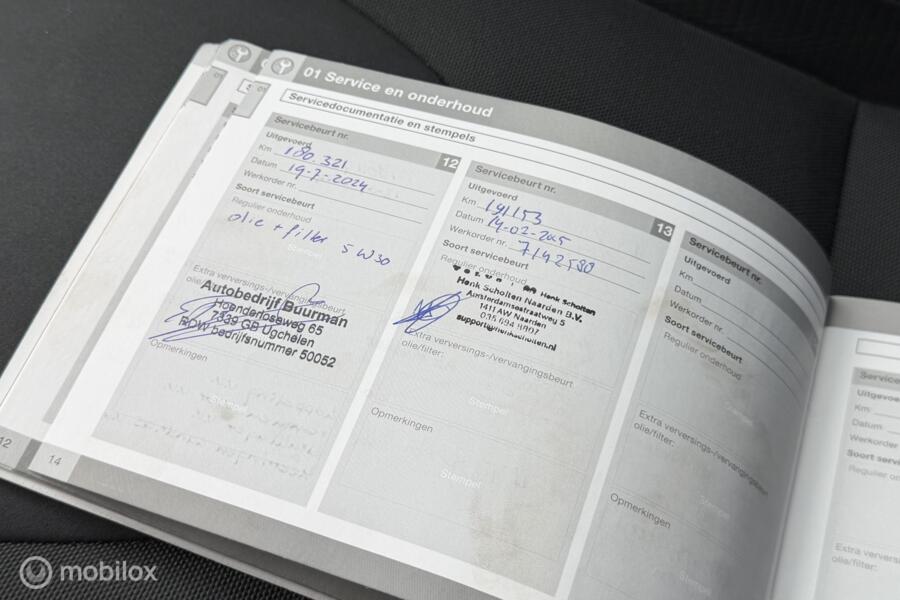 01 Service en onderhoud
Servicedocumentatie en stempels
Servicebeurt nr. 12
Uitgevoerd
Km 180.321
Datum 19-7-2024
Werkorder nr.
Soort servicebeurt
Regulier onderhoud
olie + filter 5W30
Stempel
Extra verversings-/vervangingsbeurt
olie/filter:
Autobedrijf Buurman
Hoenderloseweg 65
7339 GB Ugchelen
RDW bedrijfsnummer 50052
Opmerkingen
Stempel
Servicebeurt nr. 13
Uitgevoerd
Km 191153
Datum 14-02-2025
Werkorder nr. 7142580
Soort servicebeurt
Regulier onderhoud
Henk Scholten
Henk Scholten Naarden B.V.
Amsterdamsestraatweg 5
1411 AW Naarden
Extra verversings-/vervangingsbeurt
olie/filter:
Stempel
Opmerkingen
Stempel
Servicebeurt nr.
Uitgevoerd
Km
Datum
Werkorder nr.
Soort servicebeurt
Regulier onderhoud
Stempel
Extra verversings-/vervangingsbeurt
olie/filter:
Stempel
Opmerkingen
Stempel
Uitgevoerd
Km
Datum
Werkorder nr.
Soort
Regulier
Extra
olie/filter:
12
14
mobilox